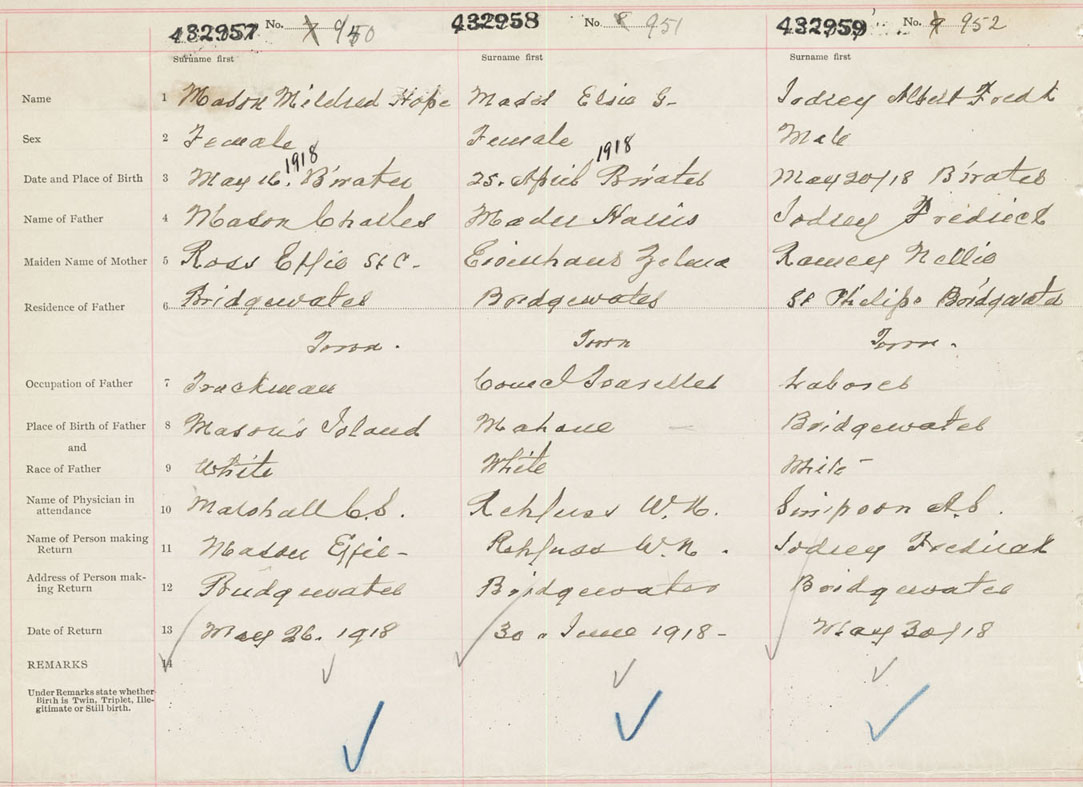 432957 No. 7 950 432958 No. 8 951 432959 No. 9 952
Surname first Surname first Surname first
Name 1 Mason Mildred Hope Elsie G. Albert Fredk
Sex 2 Female Female Male
1918 1918
Date and Place of Birth 3 May 16. B'water 25. April B'water May 20/18 B'water
Name of Father 4 Mason Charles Mader Harris
Maiden Name of Mother 5 Ross Effie St C. Eisenhaur Zelma Ramey Nellie
Residence of Father 6 Bridgewater Bridgewater St Philips Bridgwater
Town. Town Town.
Occupation of Father 7 Truckman Com'l Traveller Laborer
Place of Birth of Father 8 Mason's Island Mahone Bridgewater
and
Race of Father 9 White White White
Name of Physician in
attendance 10 Marshall C.S. Rehfuss W.N. Simpson A.S.
Name of Person making
Return 11 Mason Effie Rehfuss W.N.
Address of Person mak-
ing Return 12 Bridgewater Bridgewater Bridgewater
Date of Return 13 May 26. 1918 30. June 1918 May 30/18
REMARKS 14
Under Remarks state whether
Birth is Twin, Triplet, Ille-
gitimate or Still birth.